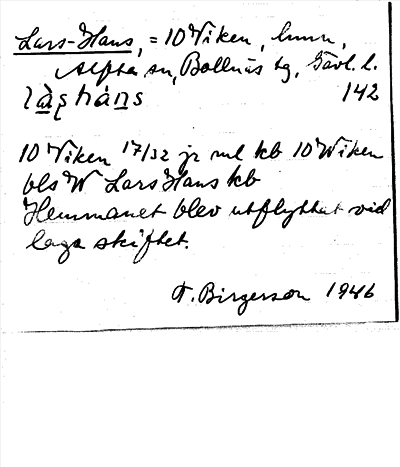 Lars-Hans, = 10 Viken, hmn,
Alfta sn, Bollnäs tg, Gävl. l.
làʂhàns 142
10 Viken 17/32 jr ml kb 10 Wiken
bls W Lars Hans kb
Hemmanet blev utflyttat vid
laga skiftet.
F. Birgerson 1946